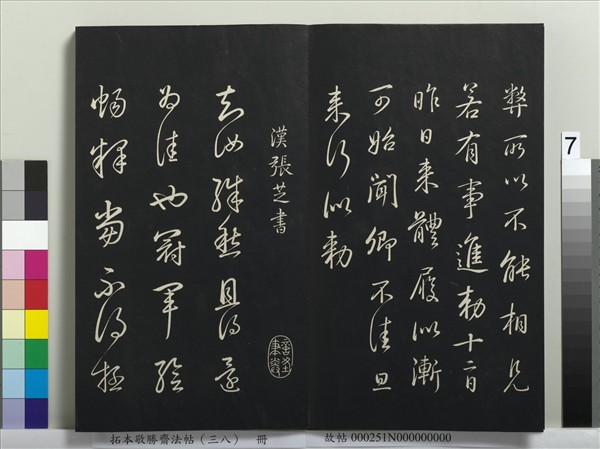 弊所以不能相見
若有事進勅十二日
昨日來體履似漸
可始聞卿不佳旦
來行似勅
漢張芝書
知汝殊愁且得還
為佳也冠軍暫
暢釋當不得極
7
拓本敬勝齋法帖(三八) 冊
故帖 000251N000000000